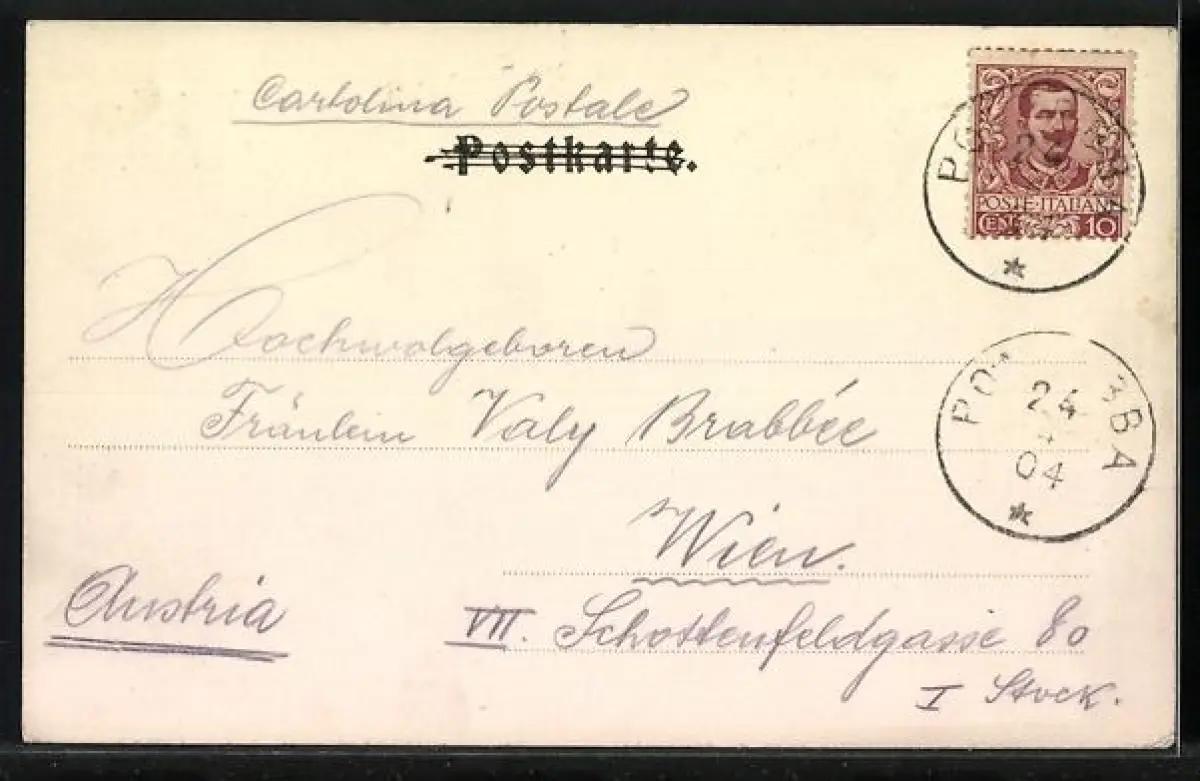 Cartolina Postale
Postkarte.
POSTE·ITALIANE
CENT 10
Hochwolgeboren
Fräulein Valy Brabbée
24
04
Wien.
Austria
VII. Schottenfeldgasse 80
I Stock.